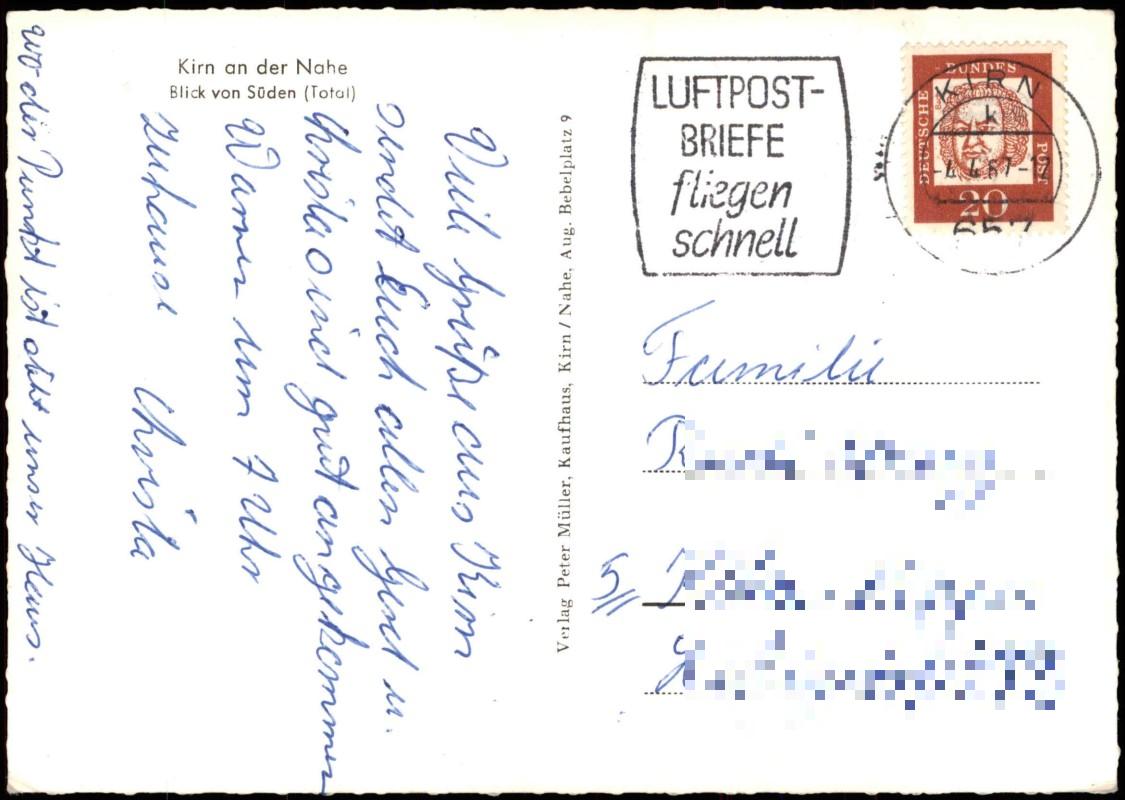 Kirn an der Nahe
Blick von Süden (Total)
Viele Grüße aus Kirn
sendet Euch allen Gerd u.
Christa sind gut angekommen
Waren um 7 Uhr
zuhause Christa
wo der Punkt ist steht unser Haus.
Verlag Peter Müller, Kaufhaus, Kirn / Nahe, Aug. Bebelplatz 9
LUFTPOST-
BRIEFE
fliegen
schnell
DEUTSCHE BUNDESPOST
20
KIRN
k
-4.4.67-12
657
Familie
5